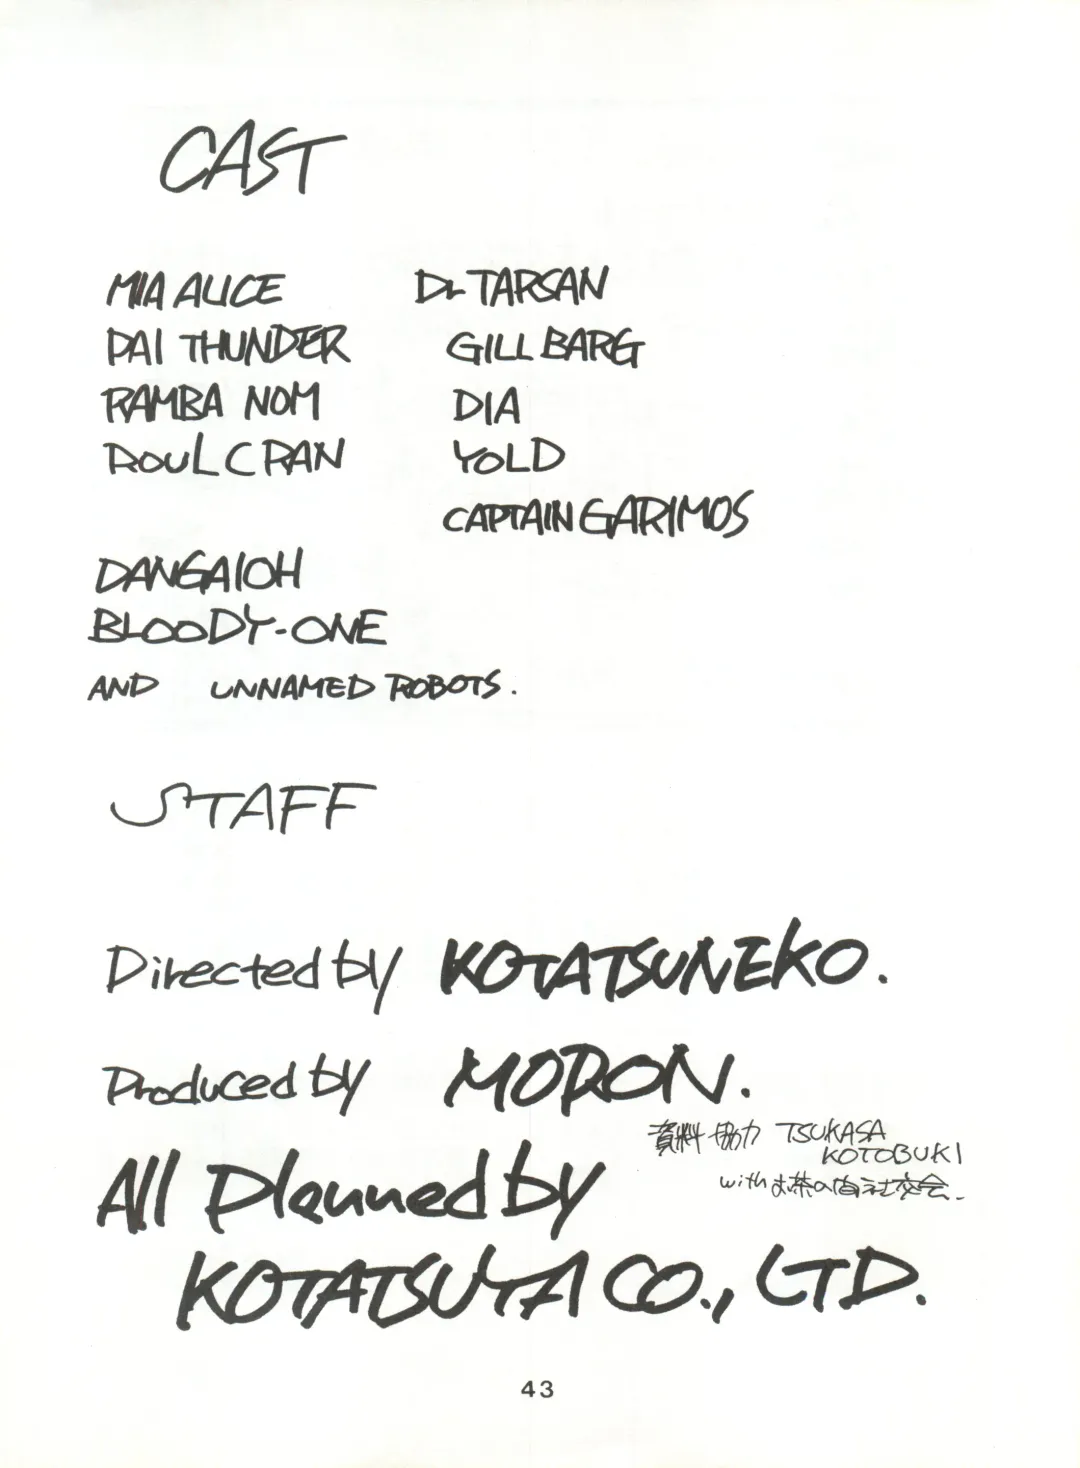 CAST
MIA ALICE
PAI THUNDER
RAMBA NOM
ROUL CRAN
Dr TARSAN
GILL BARG
DIA
YOLD
CAPTAIN GARIMOS
DANGAIOH
BLOODY-ONE
AND UNNAMED ROBOTS.
STAFF
Directed by KOTATSUNEKO.
Produced by MORON.
資料協力 TSUKASA
KOTOBUKI
with お茶の間社交会.
All Planned by
KOTATSUYA CO., LTD.
43